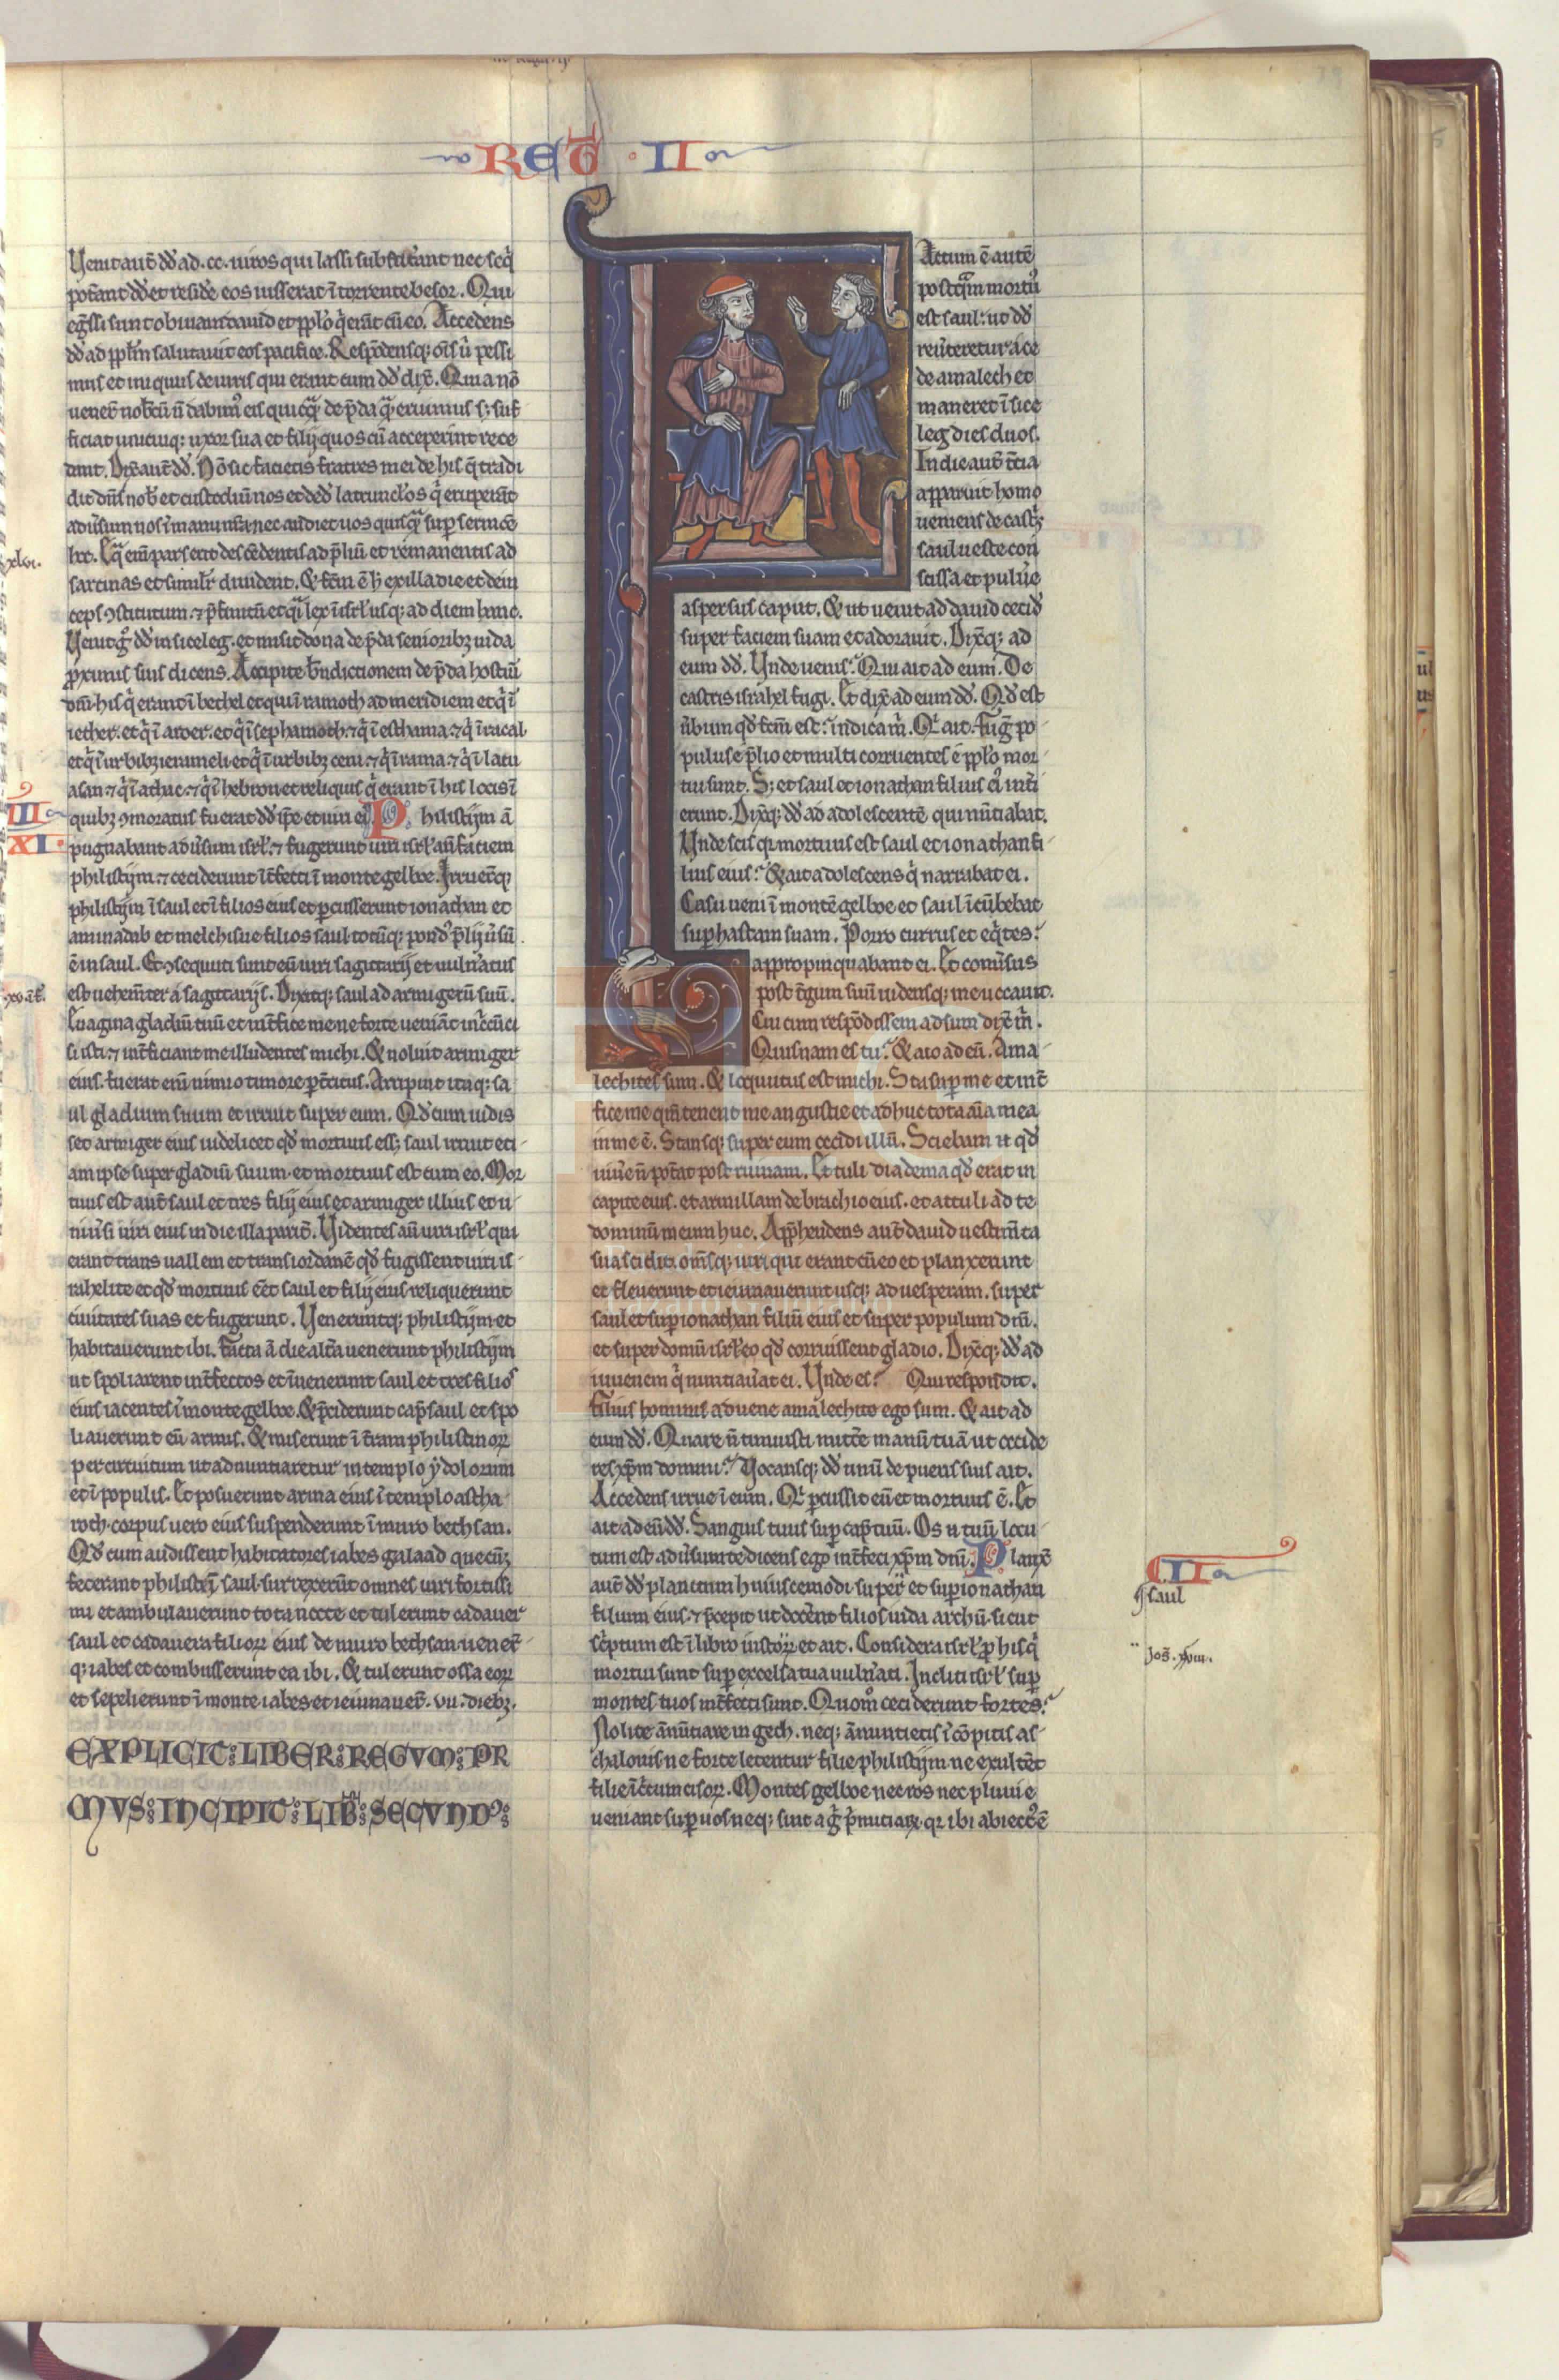 REG̅ · II
Venit aut̅ dd̅ ad .cc. uiros qui lassi substiterant nec seq̇
pot̅ant dd̅ et reside̅ eos iusserat i̅ torrente besor. Qui
eg̅ssi sunt obuiam dauid et pp̅lo q̇ erāt cū eo. Accedens
dd̅ ad pp̅lm̅ salutauit eos pacifice. Resp̅densq; oīs u̇ pessi
mus et iniquus de uiris qui erant cum dd̅ dix̅. Quia nō
uener̅ nob̅cū n̅ dabim᷒ eis quicq̃ de p̅da q̃ eruimus s; suf
ficiat unicuiq; uxor sua et filij quos cū acceperint rece
dant. Dix̅ aut̅ dd̅. Nō sic facietis fratres mei de his q̅ tradi
dit dn̅s nob̅ et custodiuit nos et ded̅ latrunclos q̇ eruperāt
adu̅sum nos i̅ manu nr̅a nec audiet uos quisq̃ sup̅ sermōe
hoc. Eq̃ eni̅ pars erit descēdentis ad p̅liū et remanentis ad
sarcinas et simili̅ diuident. Et fc̅m ē h̅ ex illa die et dein
ceps ꝯstitutum ⁊ p̅finitū et q̃i lex i̅ isrl̅ usq; ad diem hanc.
Venit g̊ dd̅ in siceleg. et misit dona de p̅da senioribꝫ iuda
ꝓximis suis dicens. Accipite bn̅dictionem de p̅da hostiū
dn̅i his q̇ erant i̅ bethel et qui i̅ ramoth ad meridiem et q̇ i̅
iether. et q̇ i̅ aroer. et q̇ i̅ sephamoth. ⁊ q̇ i̅ esthama. ⁊ q̇ i̅ racal
et q̇ i̅ urbibꝫ ierameli et q̇ i̅ urbibꝫ ceni. ⁊ q̇ i̅ rama. ⁊ q̇ i̅ lacu
asan. ⁊ q̇ i̅ athac. ⁊ q̇ i̅ hebron et reliquis q̇ erant i̅ his locis i̅
quibꝫ ꝯmoratus fuerat dd̅ ip̅e et uiri ei᷒. Philistijm ā
pugnabant adu̅sum isrl̅. ⁊ fugerunt uiri isrl̅ an̅ faciem
philistijm. ⁊ ceciderunt i̅t̅fecti i̅ monte gelboe. Irruer̅tq;
philistijm i̅ saul et i̅ filios eius et ꝑcusserunt ionathan et
aminadab et melchisue filios saul totūq; pond᷒ p̅lij u̅sū
ē in saul. Et ꝯsequuti sunt eū uiri sagittarij et uuln̅atus
est uehem̅ter a sagittarijs. Dixitq; saul ad armigerū suū.
Euagina gladiū tuū et int̅fice me ne forte ueniāt incc̅ūci
si isti. ⁊ int̅ficiant me illudentes michi. Et noluit armiger
eius. fuerat eni̅ nimio timore ꝑt̅ritus. Arripuit itaq; sa
ul gladium suum et irruit super eum. Qd̅ cum uidis
set armiger eius uidelicet qd̅ mortuus ess; saul irruit eti
am ipse super gladiū suum. et mortuus est cum eo. Mor
tuus est aut̅ saul et tres filij eius et armiger illius et u
niu̅si uiri eius in die illa parit̅. Videntes au̅ uiri isrl̅ qui
erant trans uallem et trans iordanē qd̅ fugissent uiri is
rahelite et qd̅ mortuus eēt saul et filij eius reliquerunt
ciuitates suas et fugerunt. Veneruntq; philistijm et
habitauerunt ibi. Facta ā die alt̅a uenerunt philistijm
ut spoliarent int̅fectos et i̅uenerunt saul et tres filios
eius iacentes i̅ monte gelboe. Et p̅ciderunt cap̅ saul et spo
liauerunt eū armis. Et miserunt i̅ t̅ram philistinoꝝ
per circuitum ut adnuntiaretur in templo ẏdolorum
et i̅ populis. Et posuerunt arma eius i̅ templo astha
roth. corpus uero eius suspenderunt i̅ muro bethsan.
Qd̅ cum audissent habitatores iabes galaad quecūqꝫ
fecerant philistij̅ saul. surrexerūt omnes uiri fortissi
mi et ambulauerunt tota nocte et tulerunt cadauer
saul et cadauera filioꝝ eius de muro bethsan. uener̅t
q; iabes et combusserunt ea ibi. Et tulerunt ossa eoꝝ
et sepelierunt i̅ monte iabes et ieiunauer̅. vii. diebꝫ.
EXPLICIT : LIBER : REGVM : PR
MVS : INCIPIT : LIB̅ : SECVND᷒ :
xlvi.
III
XI.
Factum ē autē
postq̃m mortu᷒
est saul. ut dd̅
reu̅teretur a ce
de amalech et
maneret i̅ sice
leg dies duos.
In die aut̅ t̅cia
apparuit homo
ueniens de castꝫ
saul ueste con
scissa et pulu̅e
aspersus caput. Et ut uenit ad dauid cecid̅
super faciem suam et adorauit. Dix̅q; ad
eum dd̅. Unde uenis? Qui ait ad eum. De
castris israhel fugi. Et dix̅ ad eum dd̅. Qd̅ est
u̅bum qd̅ fc̅m est? indica m̅. Q̇ ait. Fug̅ po
pulus e p̅lio et multi corruentes e pp̅lo mor
tui sunt. S; et saul et ionathan filius ei᷒ int̅i
erunt. Dix̅q; dd̅ ad adolescentē qui nūtiabat.
Unde scis qr̅ mortuus est saul et ionathan fi
lius eius? Et ait adolescens q̇ narrabat ei.
Casu ueni i̅ montē gelboe et saul i̅cūbebat
sup̅ hastam suam. Porro currus et eq̇tes
appropinquabant ei. Et conu̅sus
post t̅gum suū uidensq; me uocauit.
Cui cum resp̅dissem adsum dix̅ m̅.
Quisnam es tu? Et aio ad eū. Ama
lechites sum. Et loquutus est michi. Sta sup̅ me et int̅
fice me qm̅ tenent me angustie et adhuc tota aīa mea
in me ē. Stansq; super eum occidi illū. Sciebam n̅ qd̅
uiu̅e n̅ pot̅at post ruinam. Et tuli diadema qd̅ erat in
capite eius. et armillam de brachio eius. et attuli ad te
dominū meum huc. App̅hendens aut̅ dauid uestim̅ta
sua scidit. omēsq; uiri qui erant cū eo et planxerunt
et fleuerunt et ieiunauerunt usq; ad uesperam. super
saul et sup̅ ionathan filiū eius et super populum dn̅i.
et super domū isrl̅ eo qd̅ corruissent gladio. Dix̅q; dd̅ ad
iuuenem q̇ nuntiau̅at ei. Unde es? Qui respondit.
Filius hominis aduene amalechite ego sum. Et ait ad
eum dd̅. Quare n̅ timuisti mitt̅e manū tuā ut occide
res xp̅m domini? Uocansq; dd̅ unū de pueris suis ait.
Accedens irrue i̅ eum. Q̇ ꝑcussit eū et mortuus ē. Et
ait ad eū dd̅. Sanguis tuus sup̅ cap̅ tuū. Os n̅ tuū locu
tum est adu̅sum te dicens ego int̅feci xp̅m dn̅i. Planx̅
aut̅ dd̅ planctum huiuscemodi super et sup̅ ionathan
filium eius. ⁊ p̅cepit ut docerēt filios iuda archū. sicut
sc̅ptum est i̅ libro iustoꝝ et ait. Considera isrl̅ ꝓ his q̇
mortui sunt sup̅ excelsa tua uuln̅ati. Incliti isrl̅ sup̅
montes tuos int̅fecti sunt. Quom̊ ceciderunt fortes?
Nolite ānūtiare in geth. neq; ānuntietis i̅ cōpitis as
chalonis ne forte letentur filie philistijm ne exultēt
filie i̅c̅cumcisoꝝ. Montes gelboe nec ros nec pluuie
ueniant sup̅ uos neq; sint ag̅ p̅mitiaꝝ. qr̅ ibi abiect᷒ ē
II
saul
Jos̅. xviii.